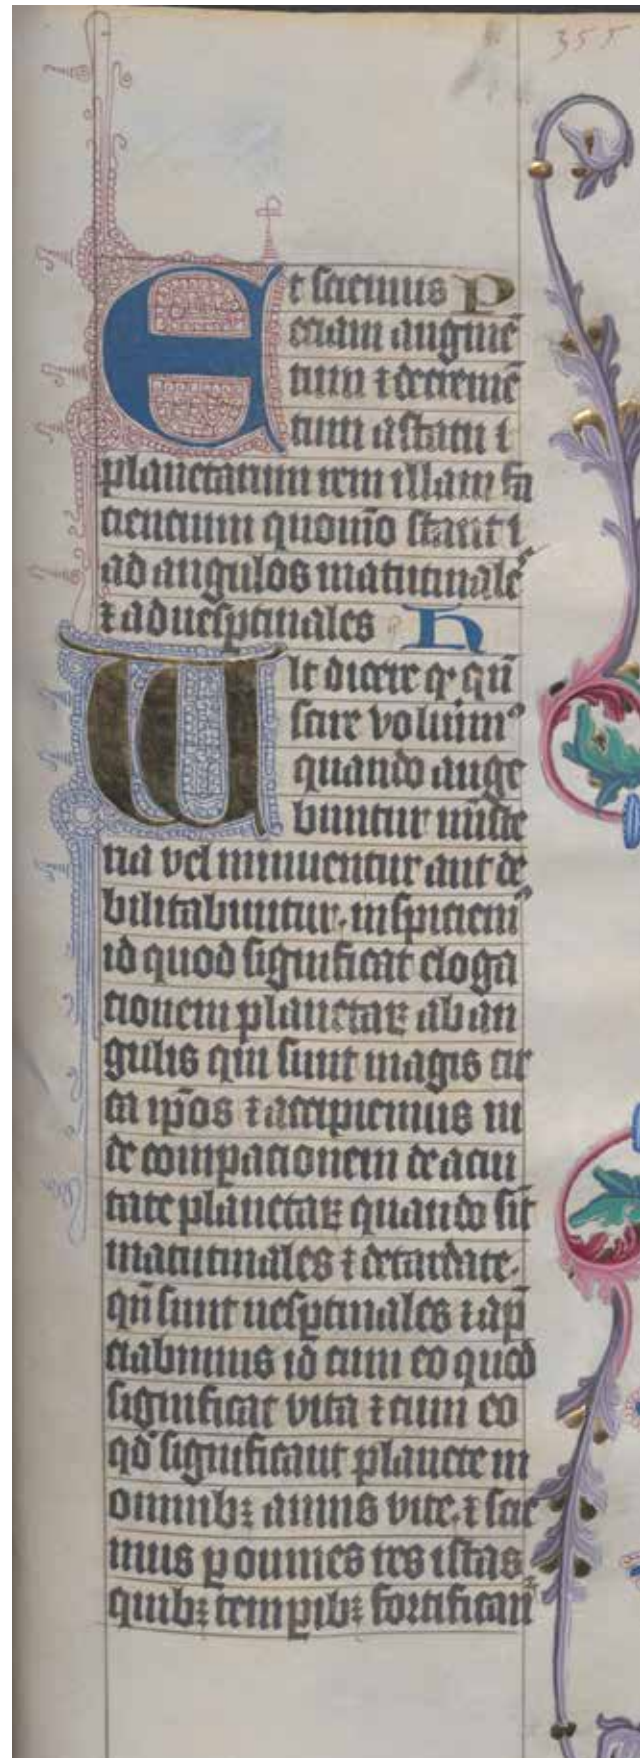 355
Et sciemus P
etiam augmē
tum ⁊ decremē
tum a statu ⁊
planetarum rem illam fa
cientium quomō stant ⁊
ad angulos matutinale⁹
⁊ ad uesptinales h
Vlt dicere qͥ qn̄
scire volum⁹
quando auge
buntur miīste
ria vel minuentur aut de
bilitabuntur. inspiciem⁹
id quod significat eloga
tionem planetaꝝ ab an
gulis qui sunt magis cir
ca ip̄os ⁊ accipiemus in
de comparationem de acui
tate planetaꝝ quando sūt
matutinales ⁊ de tardate.
qn̄ sunt uesptinales ⁊ ap̄
ciabimus id cum eo quod
significat vita ⁊ cum eo
qd̓ significant planete in
omnibꝫ annis vite. ⁊ scie
mus ꝑ omnes res istas
quibꝫ tempibꝫ fortifican